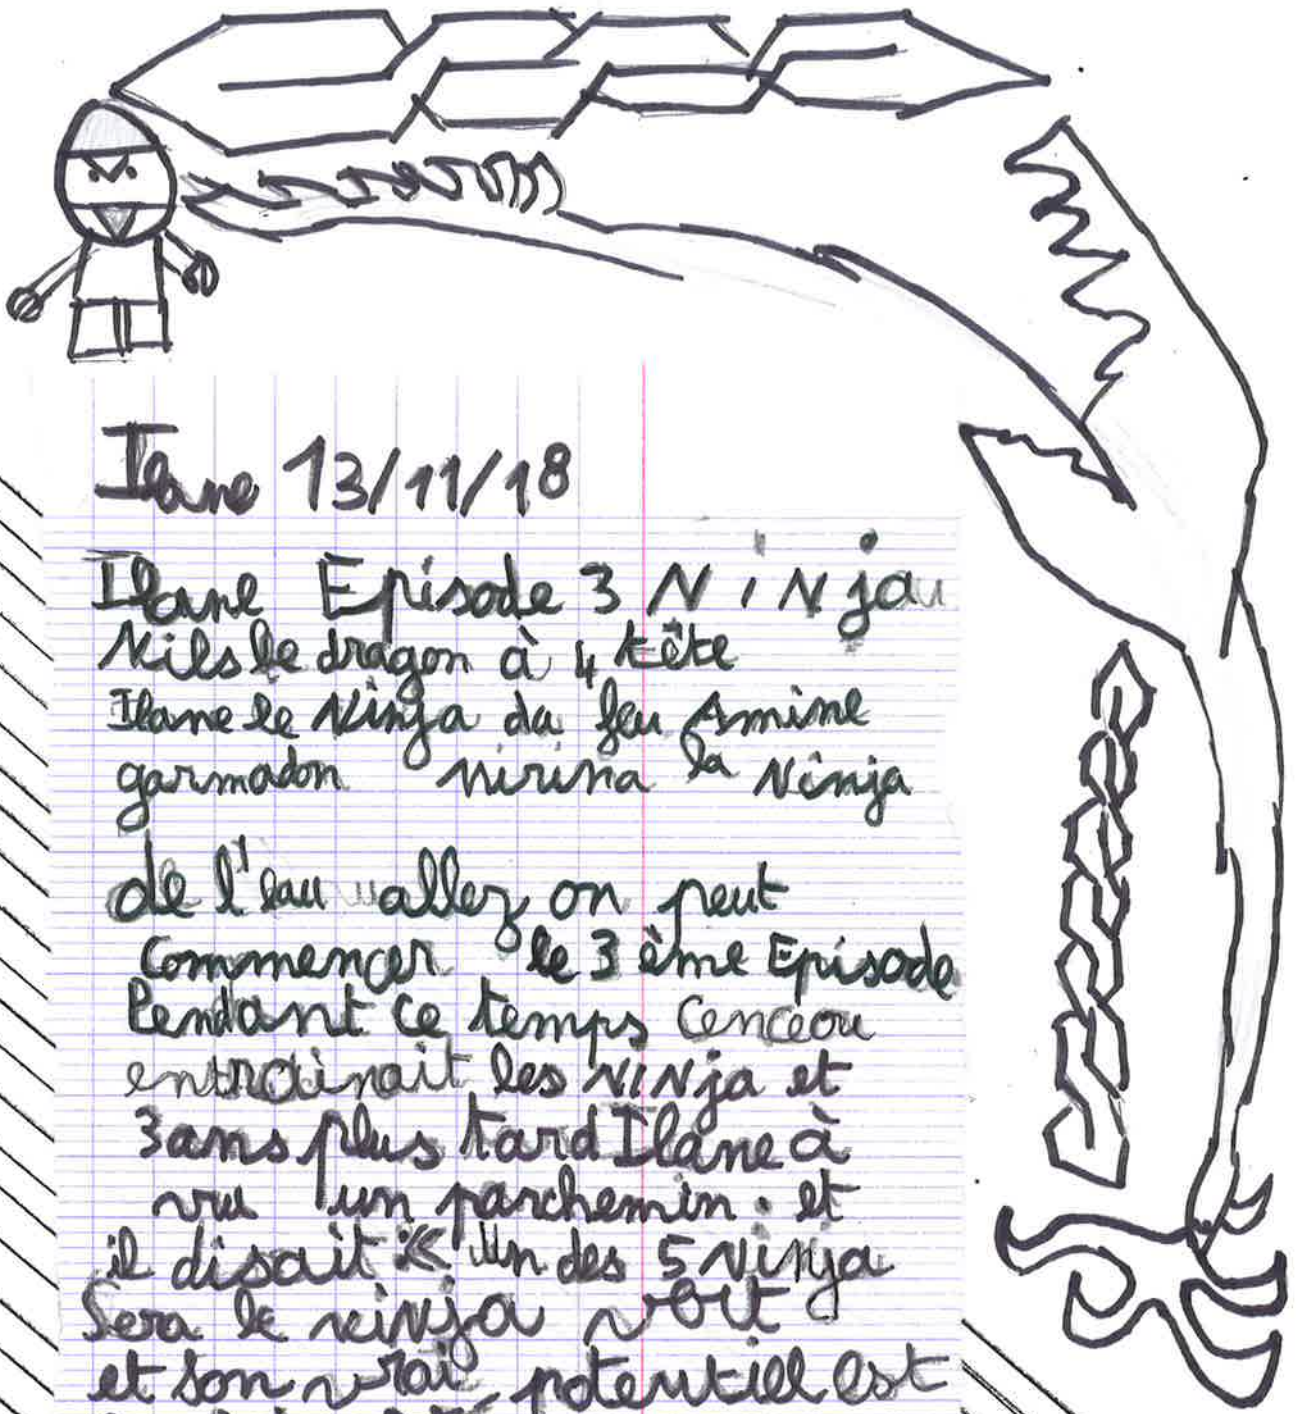 Ilane 13/11/18
Ilane Episode 3 NiNja
Nils le dragon à 4 tête
Ilane le Ninja du feu Amine
garmadon nirina la Ninja
de l'eau allez on peut
commencer le 3 ème Episode
Pendant ce temps Cenceou
entrainait les NiNja et
3 ans plus tard Ilane à
vu un parchemin. et
il disait « Un des 5 Ninja
Sera le ninja vert
et son vrai potentiell est